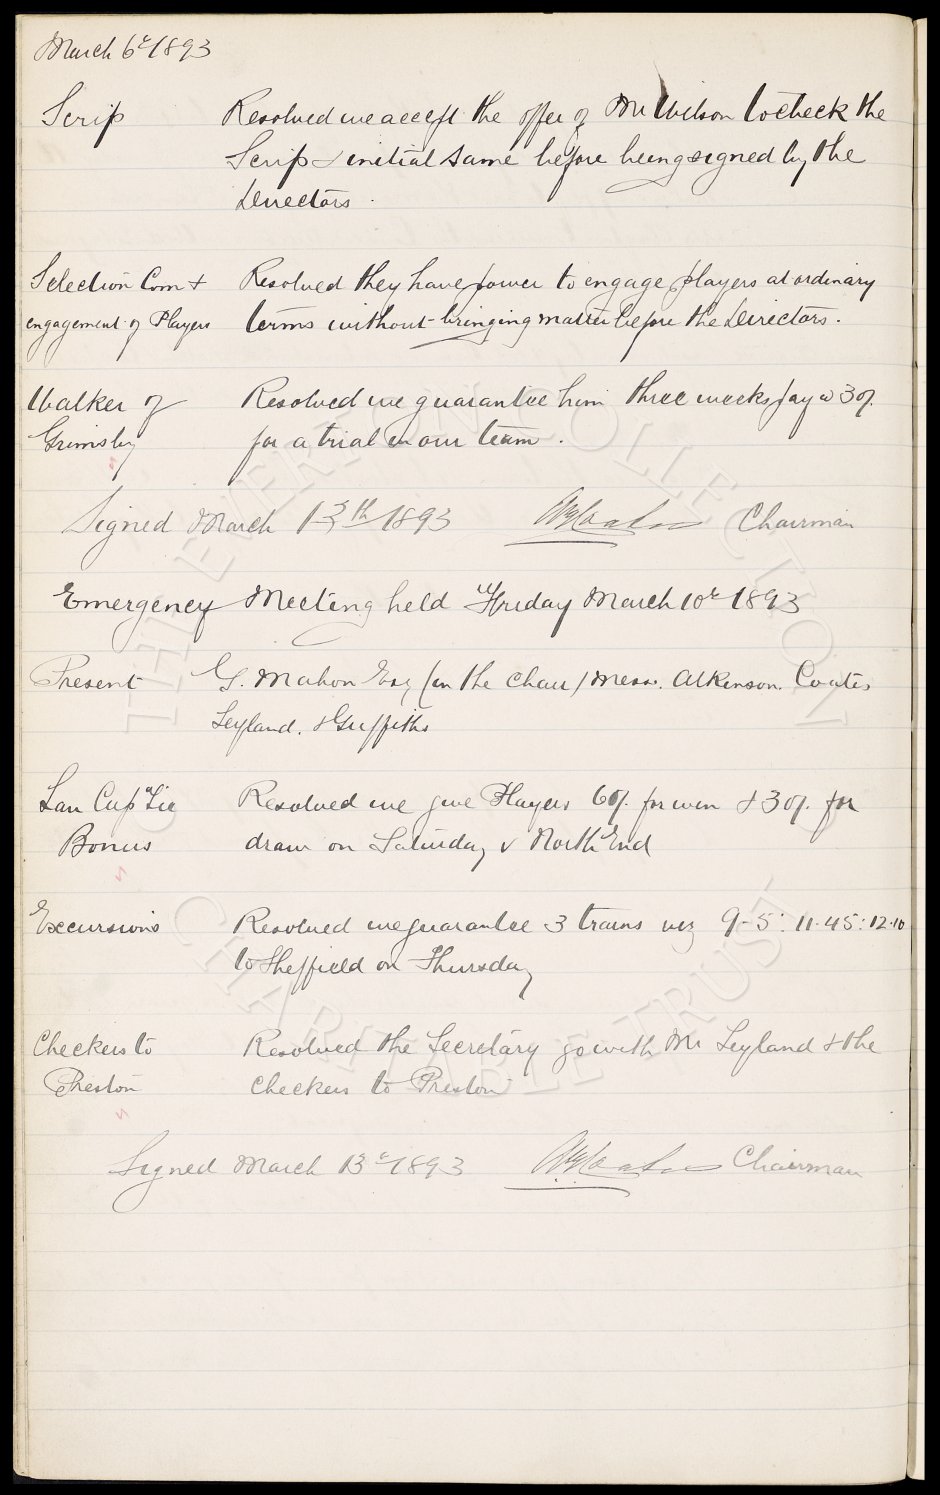 March 6th 1893
Scrip Resolved we accept the offer of Mr Wilson to check the
Scrip & initial same before being signed by the
Directors.
Selection Com & Resolved they have power to engage players at ordinary
engagement of Players terms without bringing matter before the Directors.
Walker of Resolved we guarantee him three weeks pay @ 30/.
Grimsby for a trial in our team.
Signed March 13th 1893 Chairman
Emergency Meeting held Friday March 10th 1893
Present G. Mahon Esq (in the chair) Mess. Atkinson. Coates
Leyland. & Griffiths
Lan Cup Tie Resolved we give Players 60/. for win & 30/. for
Bonus draw on Saturday v North End
Excursions Resolved we guarantee 3 trains viz 9-5: 11.45: 12.10
to Sheffield on Thursday
Checkers to Resolved the Secretary go with Mr Leyland & the
Preston checkers to Preston
Signed March 13th 1893 Chairman
THE EVERTON COLLECTION
CHARITABLE TRUST